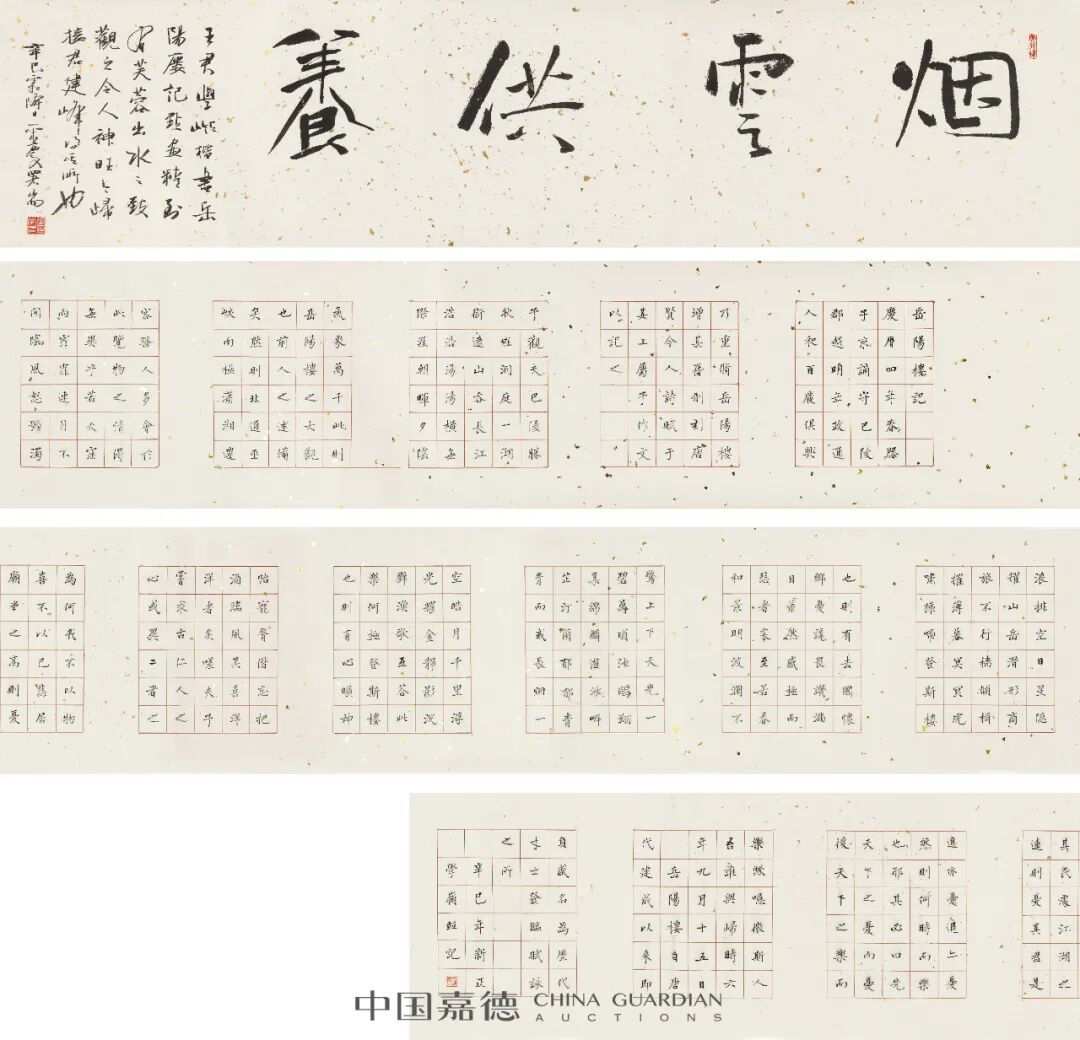 烟雲供養
王君學嶺楷書岳
陽廔記點畫精到
有芙蓉出水之致
觀之令人神旺今歸
桂君建峰得其所也
辛巳霜降
岳陽樓記
慶曆四年春滕
子京謫守巴陵
郡越明年政通
人和百廢俱興
乃重脩岳陽樓
增其舊制刻唐
賢今人詩賦于
其上屬予作文
以記之
予觀夫巴陵勝
狀在洞庭一湖
銜遠山吞長江
浩浩湯湯橫無
際涯朝暉夕陰
氣象萬千此則
岳陽樓之大觀
也前人之述備
矣然則北通巫
峽南極瀟湘遷
客騷人多會於
此覽物之情得
無異乎若夫霪
雨霏霏連月不
開陰風怒號濁
浪排空日星隱
耀山岳潛形商
旅不行檣傾楫
摧薄暮冥冥虎
嘯猿啼登斯樓
也則有去國懷
鄉憂讒畏譏滿
目蕭然感極而
悲者矣至若春
和景明波瀾不
驚上下天光一
碧萬頃沙鷗翔
集錦鱗游泳岸
芷汀蘭郁郁青
青而或長烟一
空皓月千里浮
光耀金靜影沉
璧漁歌互答此
樂何極登斯樓
也則有心曠神
怡寵辱偕忘把
酒臨風其喜洋
洋者矣嗟夫予
嘗求古仁人之
心或異二者之
為何哉不以物
喜不以己悲居
廟堂之高則憂
其民處江湖之
遠則憂其君是
進亦憂退亦憂
然則何時而樂
也耶其必曰先
天下之憂而憂
後天下之樂而
樂歟噫微斯人
吾誰與歸時六
年九月十五日
岳陽樓自唐
代建成以來即
負盛名為歷代
文士登臨賦詠
之所
辛巳年新正
學嶺姓記
中国嘉德 CHINA GUARDIAN
AUCTIONS